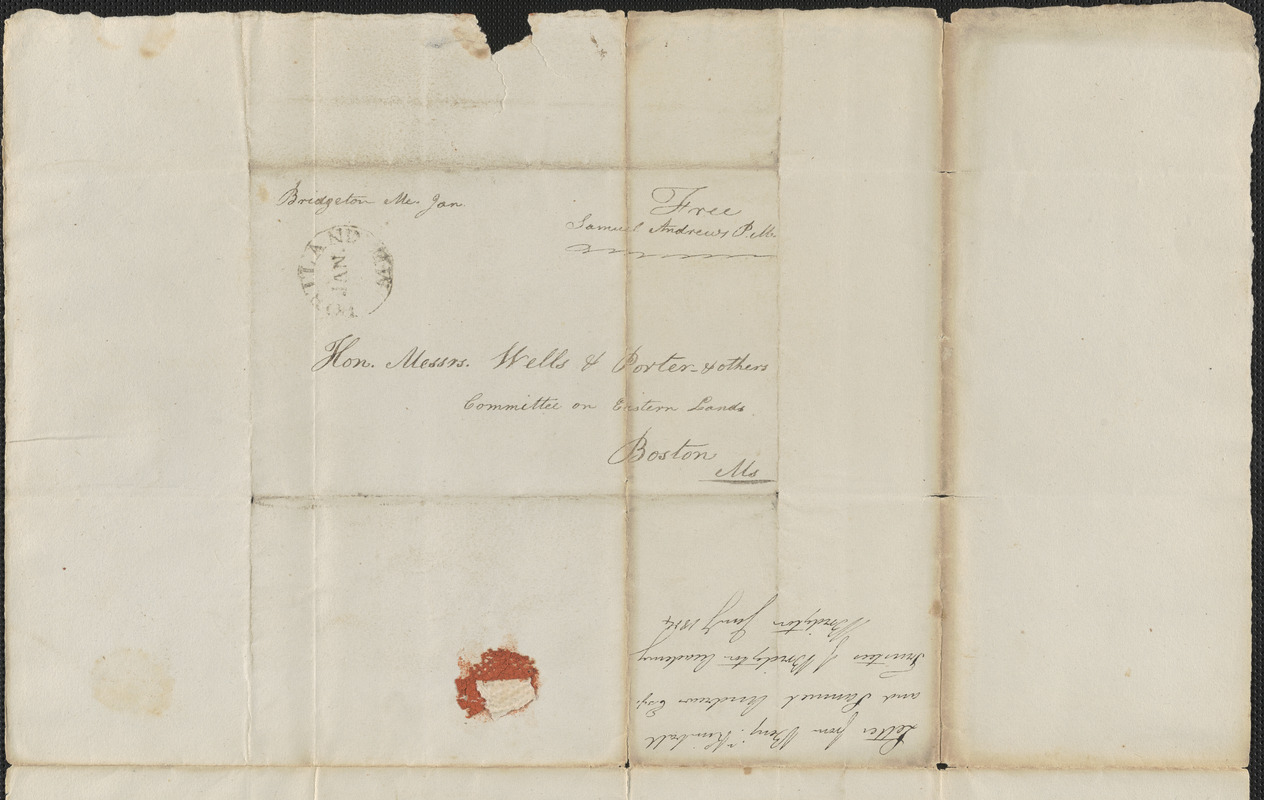 Bridgeton Me. Jan.
Free
Samuel Andrews P.M.
PORTLAND
JAN.
Hon. Messrs. Wells & Porter & others
Committee on Eastern Lands
Boston
Ms
Letter from Benj. Kimball
and Samuel Andrews Esq.
Trustees of Bridgton Academy
Bridgton Jany 1814